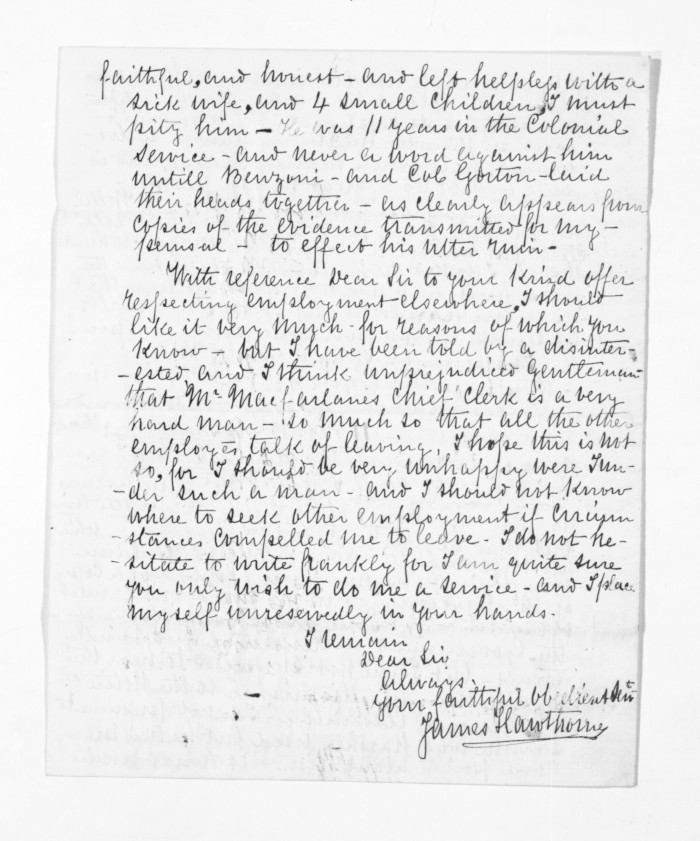 faithful, and honest - and left helpless with a
sick wife, and 4 small children, I must
pity him - He was 11 years in the Colonial
Service - and never a word against him
untill - and Col Gorton - laid
their heads together - as clearly appears from
copies of the evidence transmitted for my -
perusal - to effect his utter ruin -
With reference Dear Sir to your kind offer
respecting employment elsewhere, I should
like it very much - for reasons of which you
know - but I have been told by a disinter-
-ested and I think unprejudiced Gentleman
that Mr Macfarlanes chief clerk is a very
hard man - so much so that all the other
employes talk of leaving, I hope this is not
so, for I should be very unhappy were I un-
-der such a man - and I should not know
where to seek other employment if Circum
-stances compelled me to leave - I do not he-
-sitate to write frankly for I am quite sure
you only wish to do me a service - and I place
myself unreservedly in your hands.
I remain
Dear Sir
Always
Your faithful obedient Sert
James Hawthorne